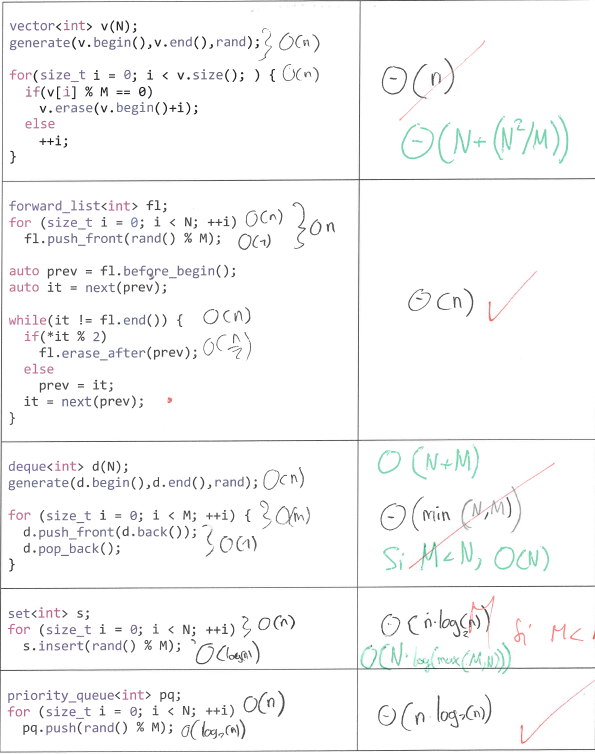 vector<int> v(N);
generate(v.begin(),v.end(),rand); } O(n)
for(size_t i = 0; i < v.size(); ) { O(n)
if(v[i] % M == 0)
v.erase(v.begin()+i);
else
++i;
}
Θ(n)
Θ(N+(N²/M))
forward_list<int> fl;
for (size_t i = 0; i < N; ++i) O(n)
fl.push_front(rand() % M); O(1)
} On
auto prev = fl.before_begin();
auto it = next(prev);
while(it != fl.end()) { O(n)
if(*it % 2)
fl.erase_after(prev); O(n/2)
else
prev = it;
it = next(prev);
}
Θ(n) ✓
deque<int> d(N);
generate(d.begin(),d.end(),rand); O(n)
for (size_t i = 0; i < M; ++i) { } O(m)
d.push_front(d.back());
d.pop_back(); } O(1)
}
O(N+M)
Θ(min(N,M))
Si M<N, O(N)
set<int> s;
for (size_t i = 0; i < N; ++i) } O(n)
s.insert(rand() % M); O(log(n))
Θ(n·log₂(N)) M Si M<
O(N·log(max(M,N)))
priority_queue<int> pq;
for (size_t i = 0; i < N; ++i) O(n)
pq.push(rand() % M); O(log₂(n))
Θ(n·log₂(n)) ✓